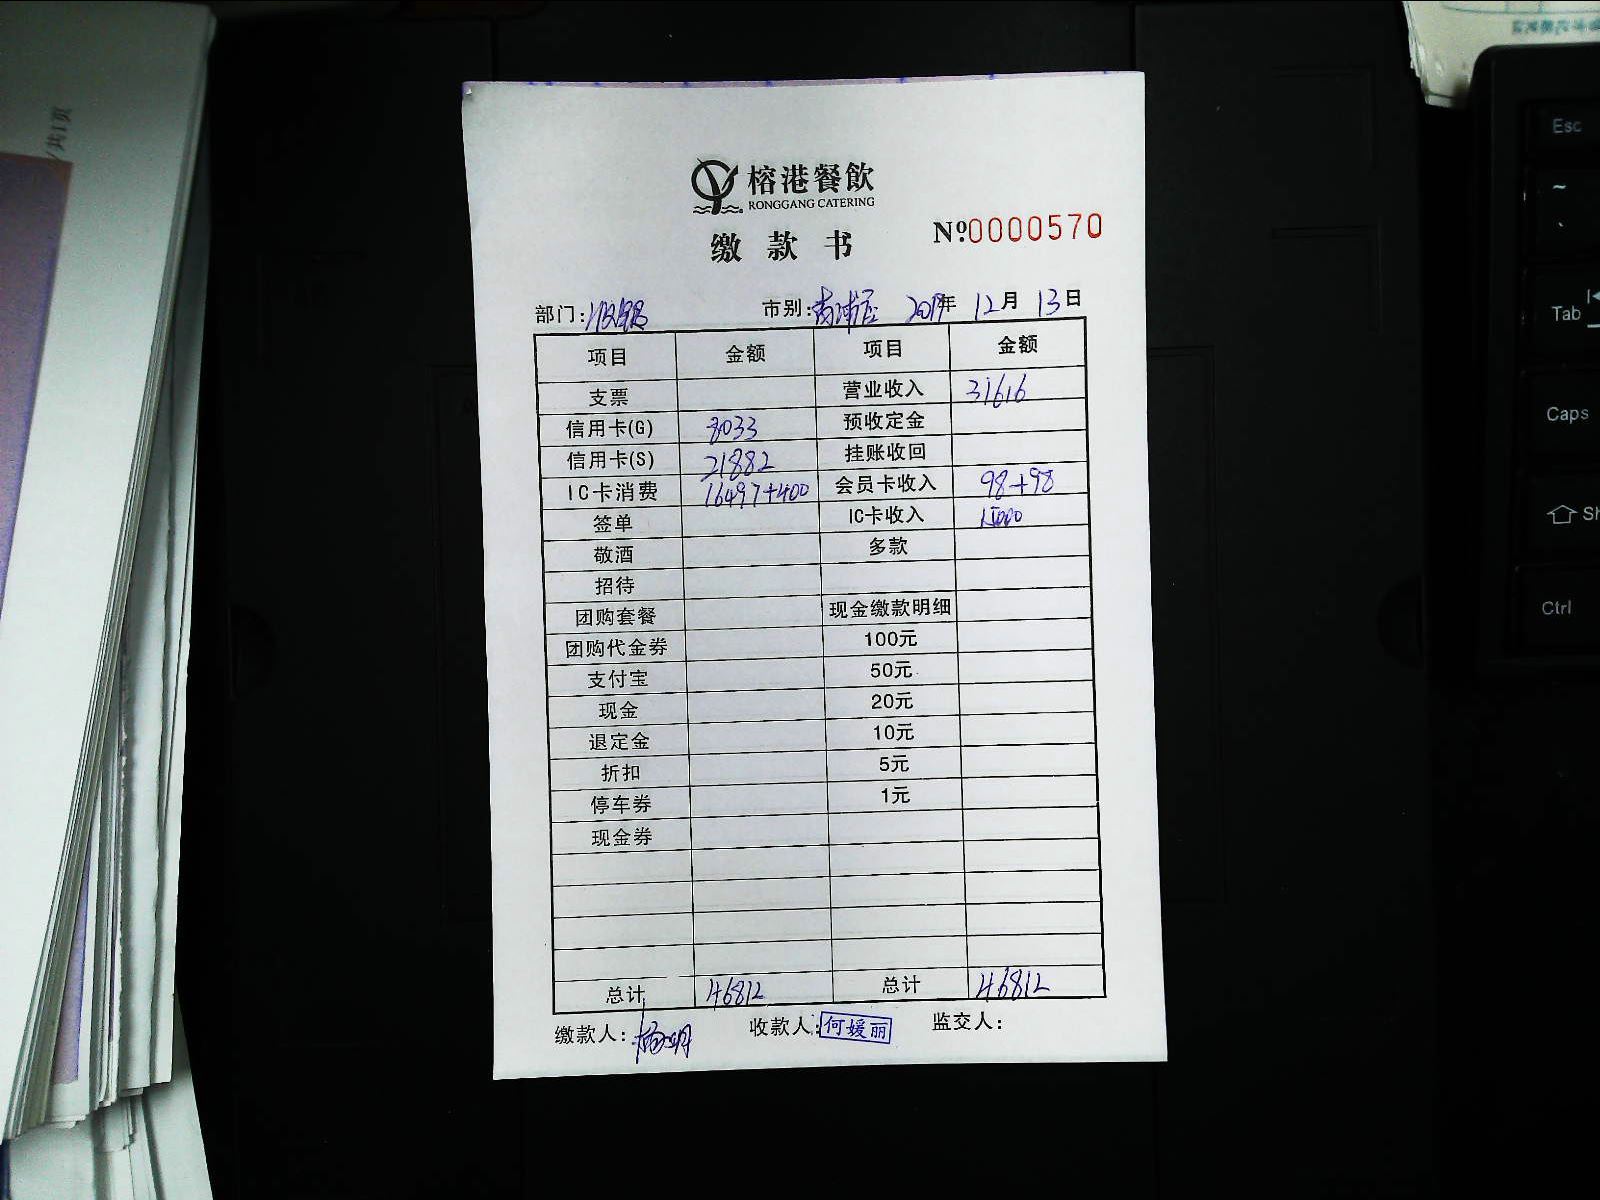 /共1页
榕港餐飲
RONGGANG CATERING
缴款书
Nº0000570
部门:收银 市别:南浦店 2019年 12月 13日
项目 金额 项目 金额
支票 营业收入 31616
信用卡(G) 8033 预收定金
信用卡(S) 21882 挂账收回
IC卡消费 16497+400 会员卡收入 98+98
签单 IC卡收入 15000
敬酒 多款
招待
团购套餐 现金缴款明细
团购代金券 100元
支付宝 50元
现金 20元
退定金 10元
折扣 5元
停车券 1元
现金券
总计 46812 总计 46812
缴款人: 收款人:何媛丽 监交人:
Esc
~
Tab
Caps
Sh
Ctrl